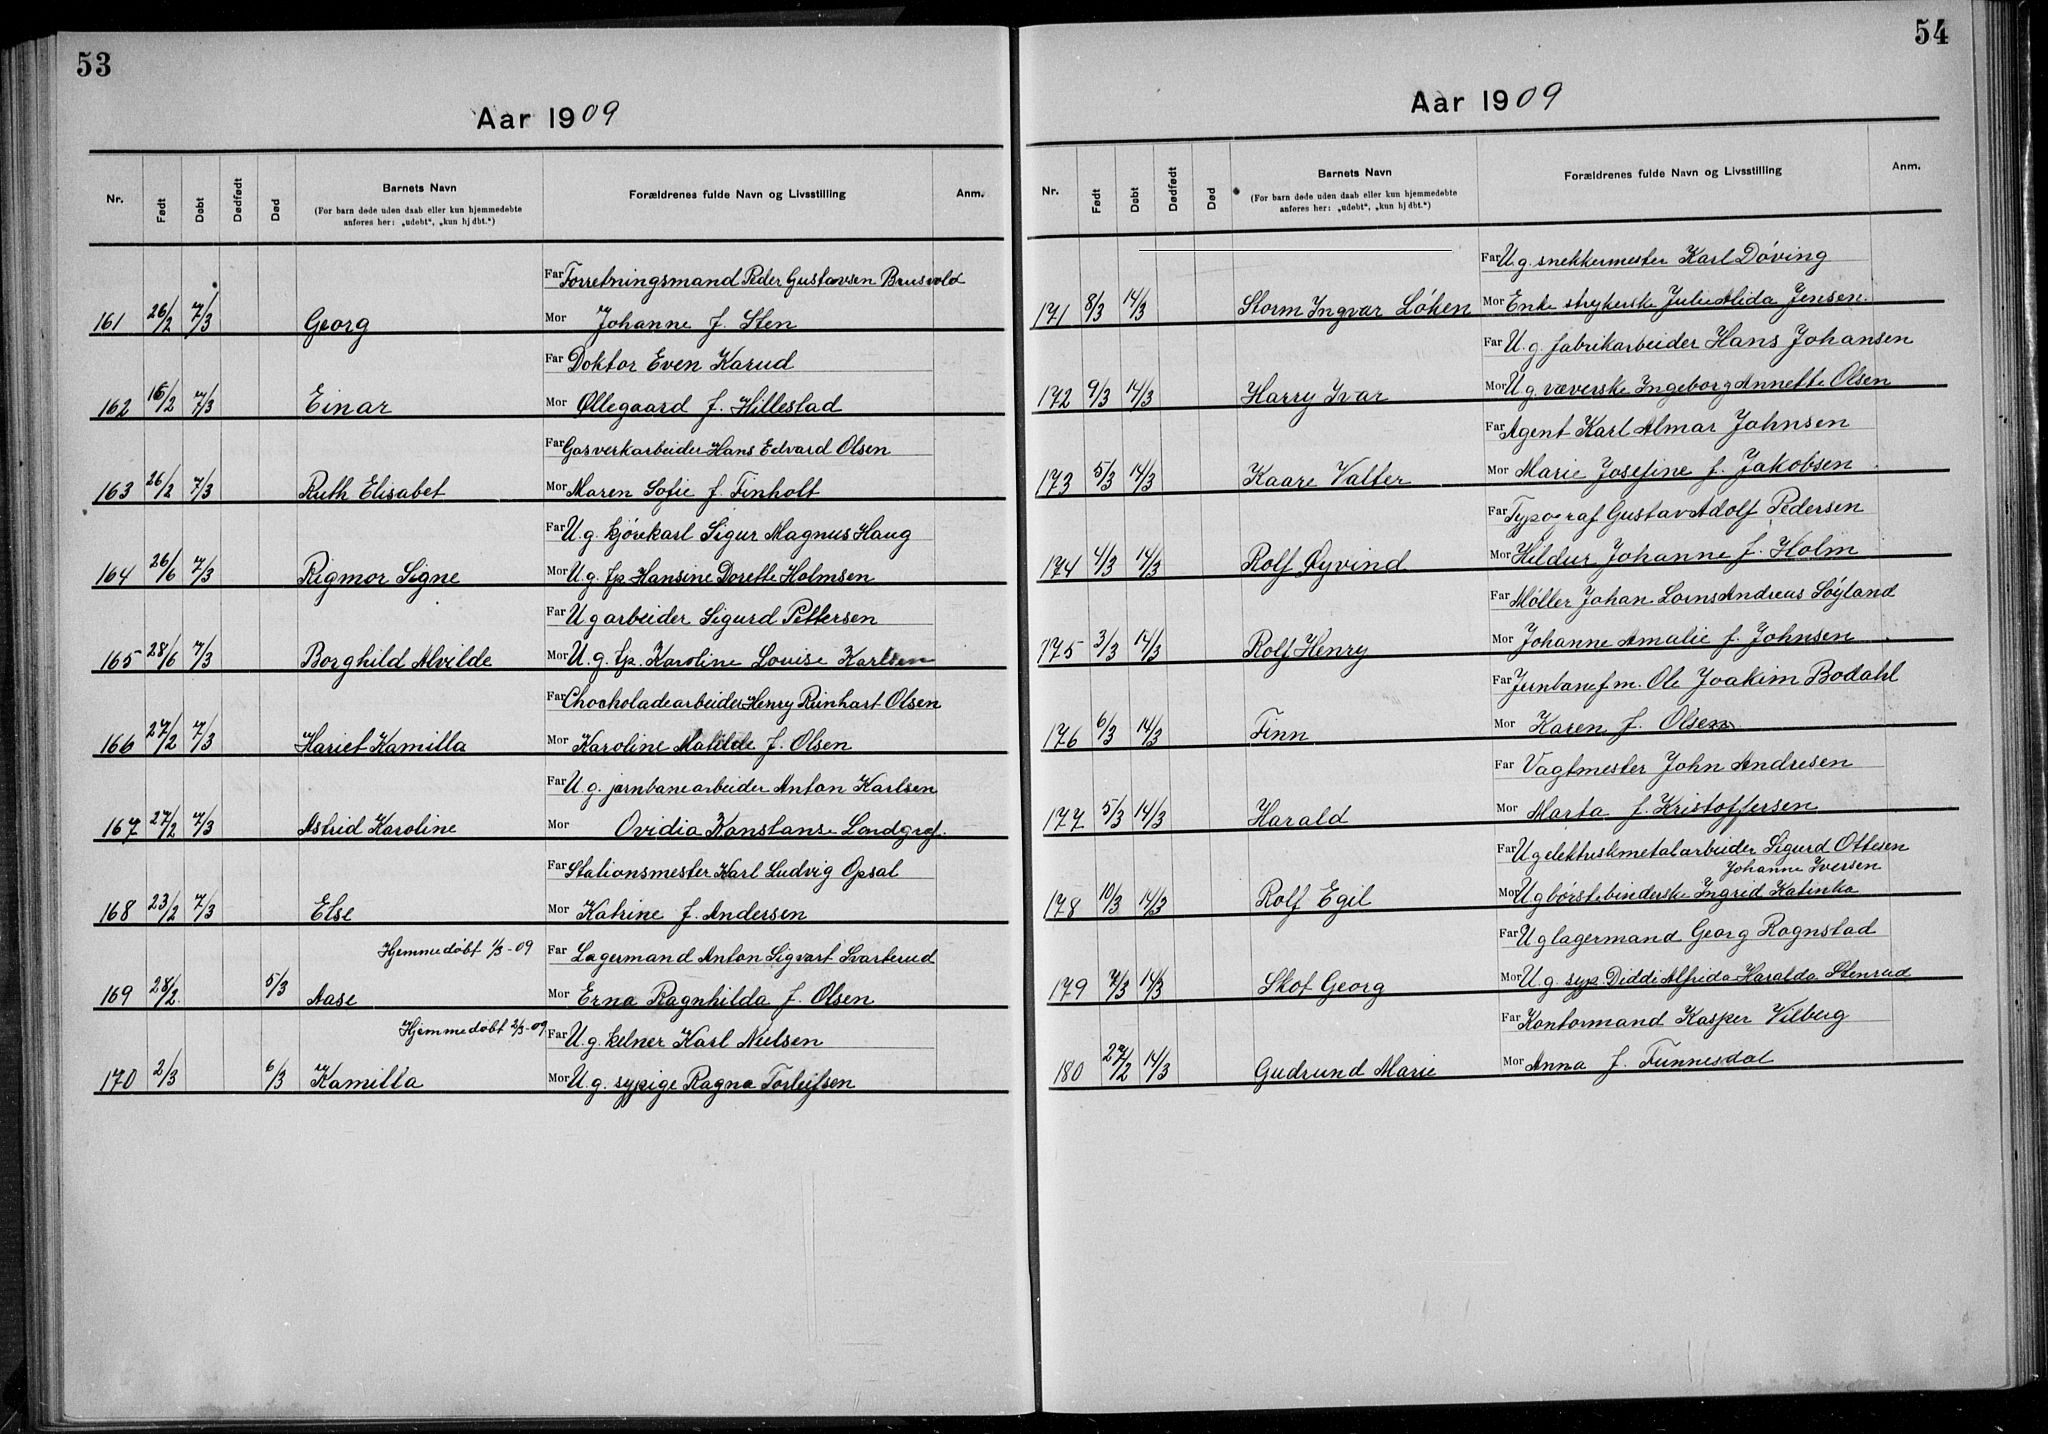 53
Aar 1909
Nr. Født Døbt Dødfødt Død Barnets Navn Forældrenes fulde Navn og Livsstilling Anm.
(For barn døde uden daab eller kun hjemmedøbte
anføres her: „udøbt“, „kun hj dbt.“)
Far Forretningsmand Peder Gustavsen Brusvold
161 26/2 7/3 Georg Mor Johanne f. Sten
Far Doktor Even Karud
162 16/2 7/3 Einar Mor Øllegaard f. Hillestad
Far Gasverkarbeider Hans Edvard Olsen
163 26/2 7/3 Ruth Elisabet Mor Maren Sofie f. Finholt
Far U.g. kjørekarl Sigur Magnus Haug
164 26/6 7/3 Rigmor Signe Mor U.g. tp. Hansine Dorette Holmsen
Far U g arbeider Sigurd Pettersen
165 28/6 7/3 Borghild Alvilde Mor U.g. tp. Karoline Louise Karlsen
Far Chockoladearbeider Henry Reinhart Olsen
166 27/2 7/3 Hariet Kamilla Mor Karoline Matilde f. Olsen
Far U.g. jernbanearbeider Anton Karlsen
167 27/2 7/3 Astrid Karoline Mor Ovidia Konstanse Landgraf.
Far Stationsmester Karl Ludvig Opsal
168 23/2 7/3 Else Mor Katrine f. Andersen
Hjemmedøbt 1/3-09 Far Lagermand Anton Sigvart Svarterud
169 28/2. 5/3 Aase Mor Erna Ragnhilda f. Olsen
Hjemmedøbt 2/3-09 Far U.g. kelner Karl Nielsen
170 2/3 6/3 Kamilla Mor U.g. sypige Ragna Torleifsen
54
Aar 1909
Nr. Født Døbt Dødfødt Død Barnets Navn Forældrenes fulde Navn og Livsstilling Anm.
(For barn døde uden daab eller kun hjemmedøbte
anføres her: „udøbt“, „kun hj dbt.“)
Far U.g. snekkermester Karl Døving
171 8/3 14/3 Storm Ingvar Løken Mor Enke strykerske Julie Alida Jensen.
Far U.g. fabrikarbeider Hans Johansen
172 9/3 14/3 Harry Ivar Mor U.g. væverske Ingeborg Annette Olsen
Far Agent Karl Almar Johnsen
173 5/3 14/3 Kaare Valter Mor Marie Josefine f. Jakobsen
Far Typograf Gustav Adolf Pedersen
174 4/3 14/3 Rolf Øyvind Mor Hildur Johanne f. Holm
Far Møller Johan Lorns Andreas Søyland
175 3/3 14/3 Rolf Henry Mor Johanne Amalie f. Johnsen
Far Jernbanefm. Ole Joakim Bodahl
176 6/3 14/3 Finn Mor Karen f. Olsen
Far Vagtmester John Andresen
177 5/3 14/3 Harald Mor Marta f. Kristoffersen
Far U g elektriskmetalarbeider Sigurd Ottesen
Johanne Iversen
178 10/3 14/3 Rolf Egil Mor U g børstebinderske Ingrid Katinka
Far U g lagermand Georg Rognstad
179 7/3 14/3 Skot Georg Mor U.g. syp. Diddi Alfrida Haralda Stenrud
Far Kontormand Kasper Vilberg
180 27/2 14/3 Gudrund Marie Mor Anna f. Funnesdal